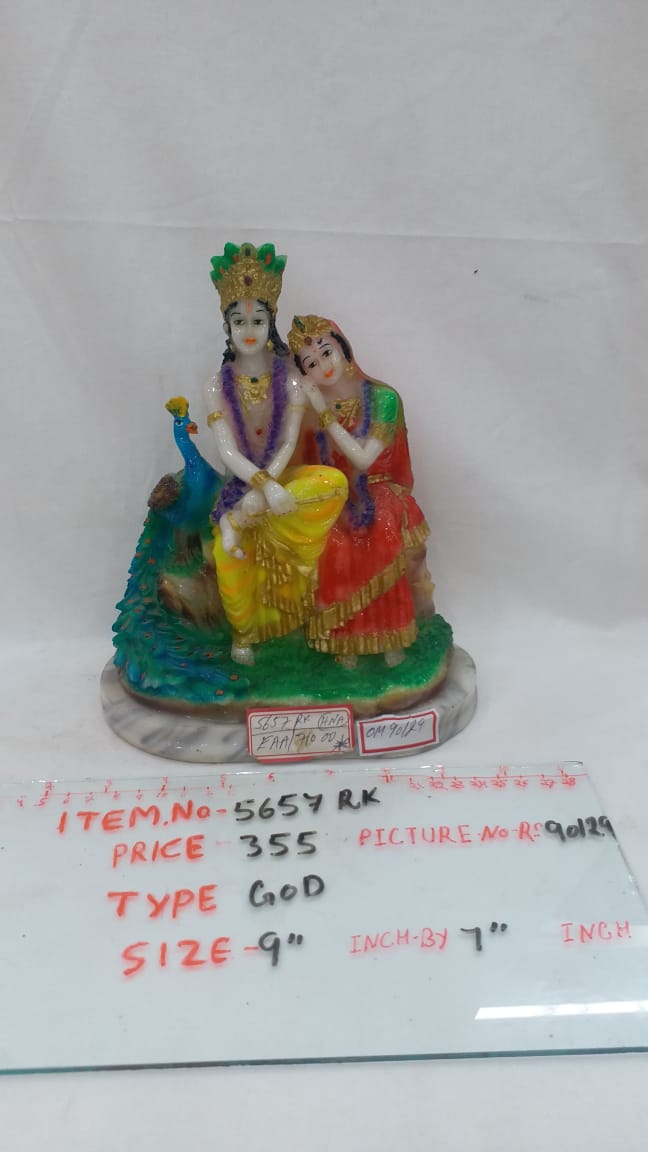 5657 RK
OM 90129
ITEM.No-5657 RK
PRICE 355 PICTURE-No-Rs 90129
TYPE GOD
SIZE-9" INCH-BY 7" INCH